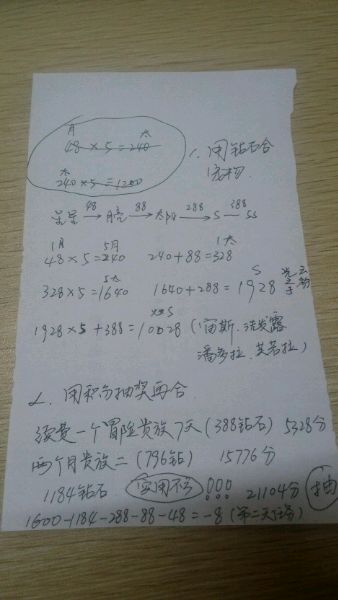 月 太
48 × 5 = 240
太
240 × 5 = 1200
1、用钻石合宠物
星星 48→ 月亮 88→ 太阳 288→ S 388→ SS
1月 5月 1太
48 × 5 = 240 240 + 88 = 328
5太 S
328 × 5 = 1640 1640 + 288 = 1928
1928 × 5 + 388 = 10028 (宙斯、
潘多拉、
2、用积分抽奖再合
续费一个冒险贵族7天 (388钻石) 5328分
两个月贵族二 (796钻) 15776分
1184钻石 实用不亏 !!! 21104分 抽
1600-1184-288-88-48 = -8 (第二天